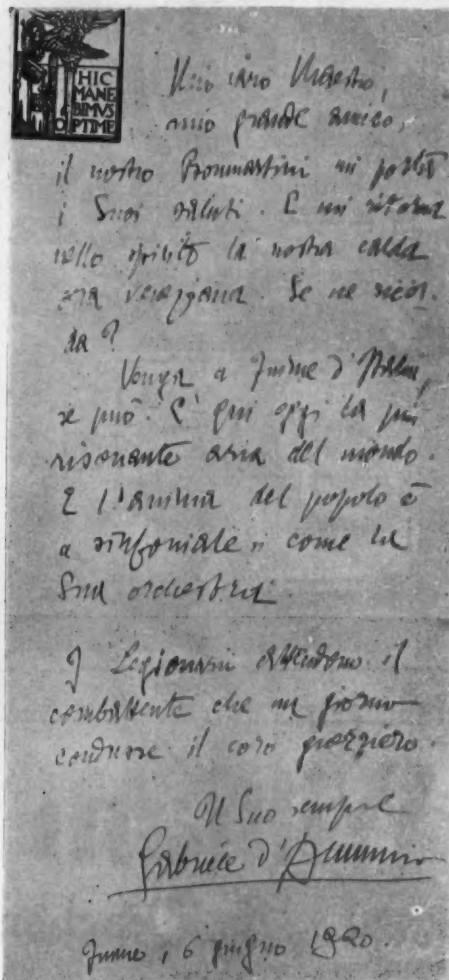 HIC
MANE
BIMVS
OPTIME
Mio caro Maestro,
mio grande amico,
il nostro mi porta
i Suoi saluti. E mi ritorna
nello spirito la nostra calda
ora. Se ne ricor-
da?
Venga a Fiume d'Italia,
se può. È qui oggi la più
risonante aria del mondo.
E l'anima del popolo è
« sinfoniale » come la
Sua orchestra.
I Legionari attendono il
combattente che un giorno
condusse il coro guerriero.
Il Suo sempre
Gabriele d'Annunzio
Fiume, 6 giugno 1920.